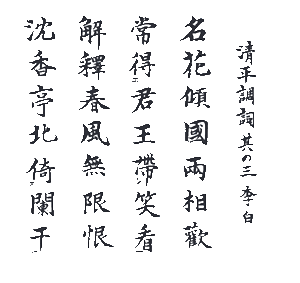 清平調詞 其の三 李白
名花傾國兩相歡
常得君王帶笑看
解釋春風無限恨
沈香亭北倚闌干